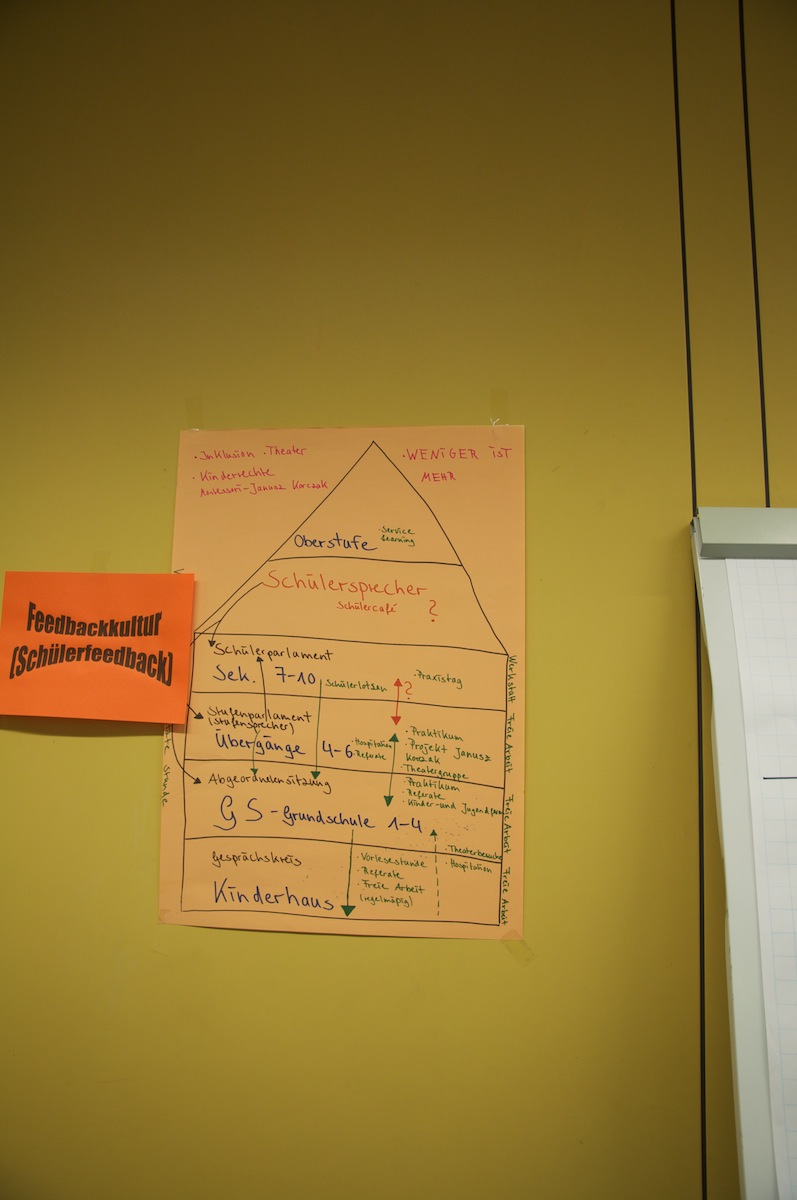 · Inklusion · Theater
· Kinderrechte
Montessori-Janusz Korczak
· WENIGER iST
MEHR
Oberstufe
· Service
Learning
Schülersprecher
Schülercafé
?
Feedbackkultur
(Schülerfeedback)
Schülerparlament
Sek. 7-10
Schülerlotsen
?
· Praxistag
Stufenparlament
(Stufensprecher)
Übergänge 4-6
· Hospitation
· Referate
· Praktikum
· Projekt Janusz
Korczak
· Theatergruppe
Abgeordnetensitzung
GS - Grundschule 1-4
· Praktikum
· Referate
· Kinder- und
Gesprächskreis
Kinderhaus
· Vorlesestunde
· Referate
· Freie Arbeit
(regelmäßig)
· Theaterbesuche
· Hospitation
Werkstatt Freie Arbeit Freie Arbeit Freie Arbeit
Stunde